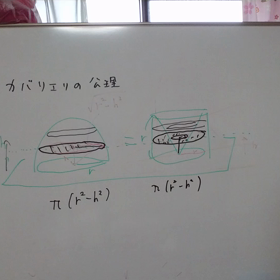 カバリエリの公理
=
π(r²-h²)
π(r²-h²)